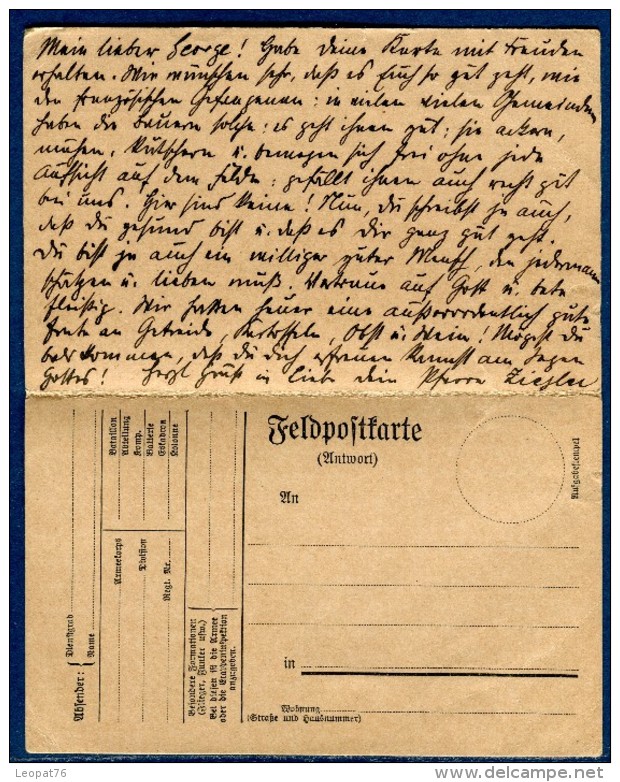 Mein lieber George! Habe deine Karte mit Freuden
erhalten. Wir wünschen sehr, daß es Euch so gut geht, wie
den französischen Gefangenen: in vielen vielen Gemeinden
haben die Bauern solche: es geht ihnen gut; sie ackern,
mähen, kutschern u. bewegen sich frei ohne jede
Aufsicht auf dem Felde: gefällt ihnen auch recht gut
bei uns. Hier sind keine! Nun, du schreibst ja auch,
daß du gesund bist u. daß es dir ganz gut geht.
Du bist ja auch ein williger guter Mensch, den jedermann
schätzen u. lieben muß. Vertraue auf Gott u. bete
fleißig. Wir hatten heuer eine außerordentlich gute
Ernte an Getreide, Kartoffeln, Obst u. Wein! Mögest du
bald kommen, daß du dich erfreuen kannst am Segen
Gottes! Herzl. Gruß in Liebe dein Pfarrer Ziegler
Feldpostkarte
(Antwort)
Aufgabestempel
An
in
Wohnung
(Straße und Hausnummer)
Absender:
Dienstgrad
Name
Bataillon
Abteilung
Komp.
Batterie
Eskadron
Kolonne
Armeekorps
Division
Regt. Nr.
Besondere Formationen
(Flieger, Funker usw.)
Bei diesen ist die Armee
oder die Etappeninspektion
anzugeben.
Leopat76
© delcampe.net